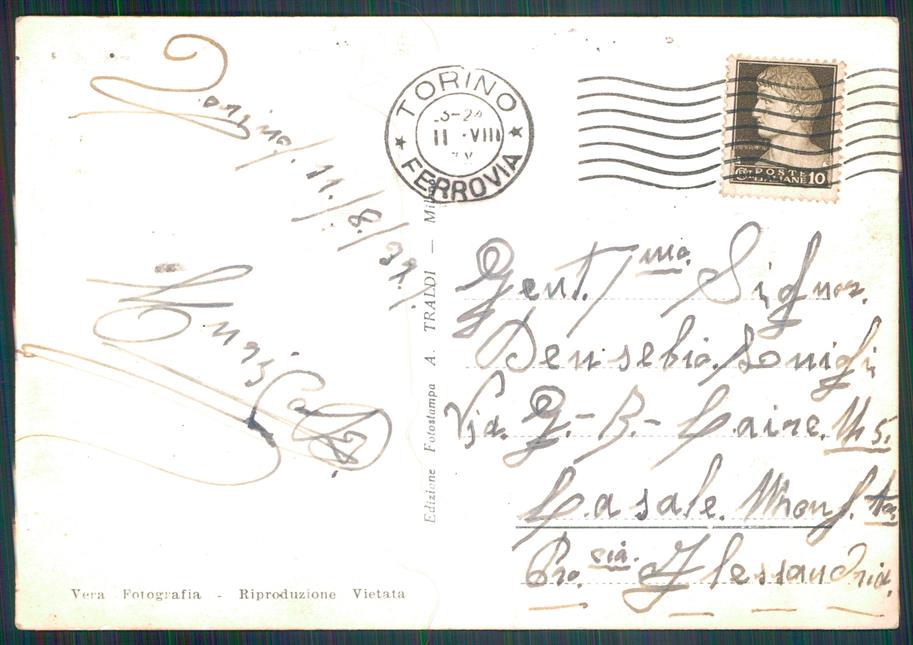 Torino, 11/8/37/
TORINO
3-24
11 VIII
FERROVIA
POSTE
ITALIANE 10
Edizione Fotostampa A. TRALDI — Milano
Gent.ma Signor.
Luigi
Via. G.-B.- Caire.
Casale. Monf.to
Pro.cia. Alessandria.
Vera Fotografia - Riproduzione Vietata